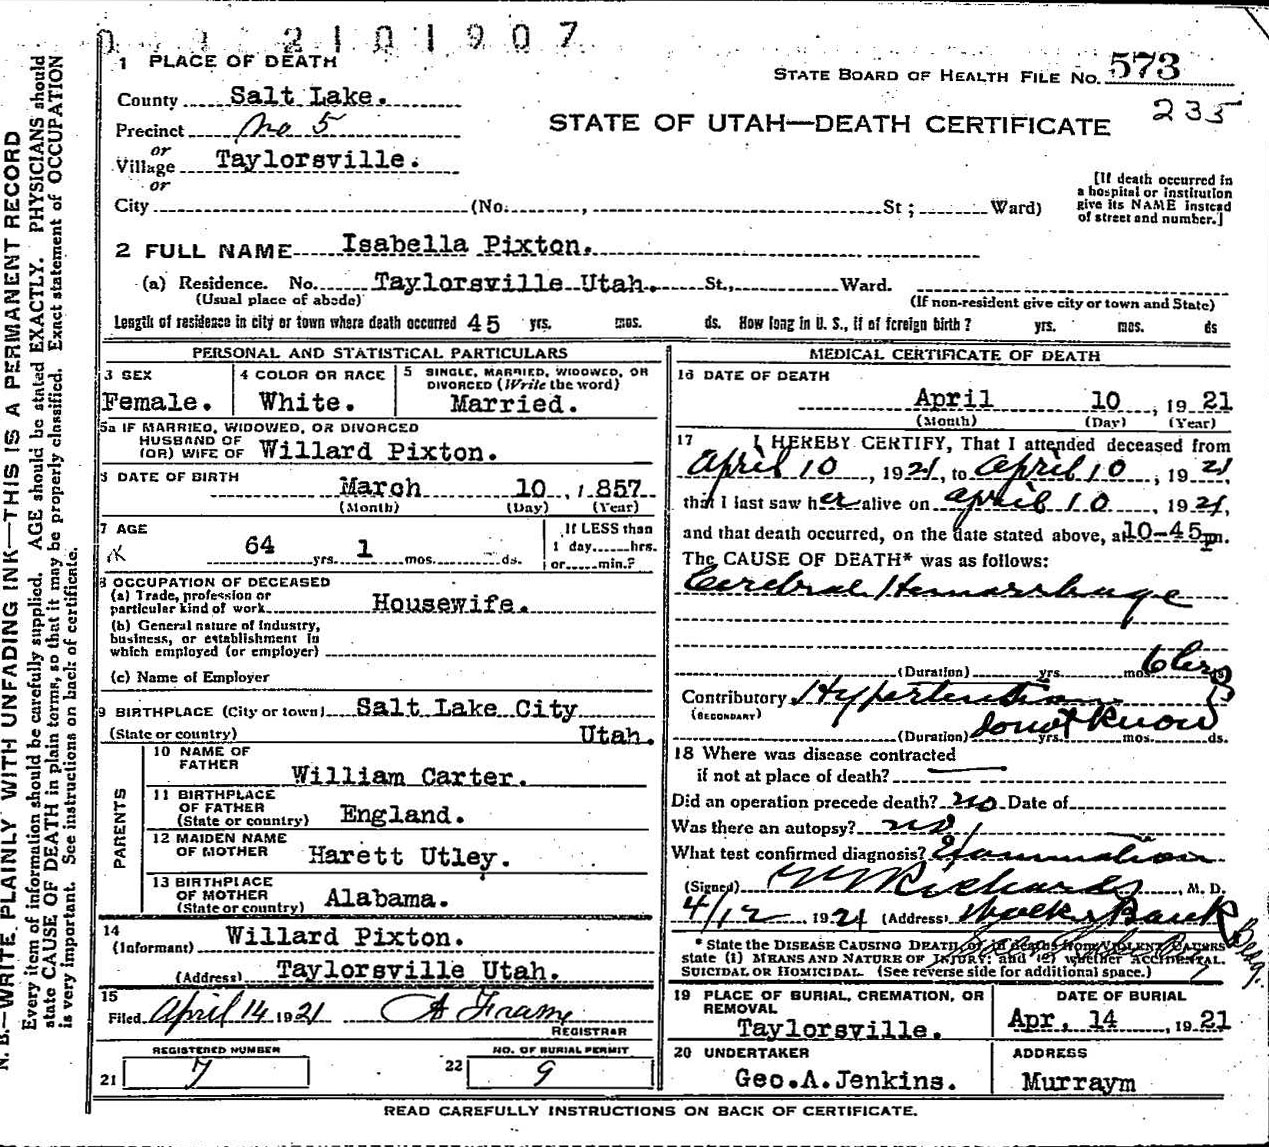 2101907
1 PLACE OF DEATH
STATE BOARD OF HEALTH FILE No. 573
County Salt Lake.
235
Precinct No 5
STATE OF UTAH—DEATH CERTIFICATE
or
Village Taylorsville.
or
City (No. , St ; Ward)
[If death occurred in
a hospital or institution
give its NAME instead
of street and number.]
2 FULL NAME Isabella Pixton.
(a) Residence. No. Taylorsville Utah. St., Ward.
(Usual place of abode)
(If non-resident give city or town and State)
Length of residence in city or town where death occurred 45 yrs. mos. ds. How long in U. S., if of foreign birth? yrs. mos. ds
PERSONAL AND STATISTICAL PARTICULARS
3 SEX
Female.
4 COLOR OR RACE
White.
5 SINGLE, MARRIED, WIDOWED, OR
DIVORCED (Write the word)
Married.
5a IF MARRIED, WIDOWED, OR DIVORCED
HUSBAND OF
(OR) WIFE OF Willard Pixton.
6 DATE OF BIRTH
March 10 , 1857
(Month) (Day) (Year)
7 AGE
64 yrs. 1 mos. ds.
If LESS than
1 day......hrs.
or......min.?
8 OCCUPATION OF DECEASED
(a) Trade, profession or
particular kind of work Housewife.
(b) General nature of Industry,
business, or establishment in
which employed (or employer)
(c) Name of Employer
9 BIRTHPLACE (City or town) Salt Lake City
(State or country) Utah.
PARENTS
10 NAME OF
FATHER William Carter.
11 BIRTHPLACE
OF FATHER
(State or country) England.
12 MAIDEN NAME
OF MOTHER Harett Utley.
13 BIRTHPLACE
OF MOTHER
(State or country) Alabama.
14
(Informant) Willard Pixton.
(Address) Taylorsville Utah.
15
Filed April 14 1921 A Frame
REGISTRAR
REGISTERED NUMBER
21 7
NO. OF BURIAL PERMIT
22 9
MEDICAL CERTIFICATE OF DEATH
16 DATE OF DEATH
April 10 , 1921
(Month) (Day) (Year)
17 I HEREBY CERTIFY, That I attended deceased from
April 10 , 1921, to April 10 , 1921
that I last saw her alive on April 10 , 1921,
and that death occurred, on the date stated above, at 10-45 p m.
The CAUSE OF DEATH* was as follows:
Cerebral Hemorrhage
(Duration) yrs. mos. 6 hrs ds
Contributory Hypertension
(SECONDARY)
(Duration) do not know yrs. mos. ds.
18 Where was disease contracted
if not at place of death?
Did an operation precede death? no Date of
Was there an autopsy? no
What test confirmed diagnosis? Examination
(Signed) Richards , M. D.
4/12 1921 (Address) Bank Bldg.
* State the DISEASE CAUSING DEATH, or in deaths from VIOLENT CAUSES
state (1) MEANS AND NATURE OF INJURY; and (2) whether ACCIDENTAL,
SUICIDAL OR HOMICIDAL. (See reverse side for additional space.)
19 PLACE OF BURIAL, CREMATION, OR
REMOVAL
Taylorsville.
DATE OF BURIAL
Apr. 14 , 1921
20 UNDERTAKER
Geo.A.Jenkins.
ADDRESS
Murraym
READ CAREFULLY INSTRUCTIONS ON BACK OF CERTIFICATE.
N. B.—WRITE PLAINLY WITH UNFADING INK—THIS IS A PERMANENT RECORD
Every item of information should be carefully supplied. AGE should be stated EXACTLY. PHYSICIANS should
state CAUSE OF DEATH in plain terms, so that it may be properly classified. Exact statement of OCCUPATION
is very important. See instructions on back of certificate.